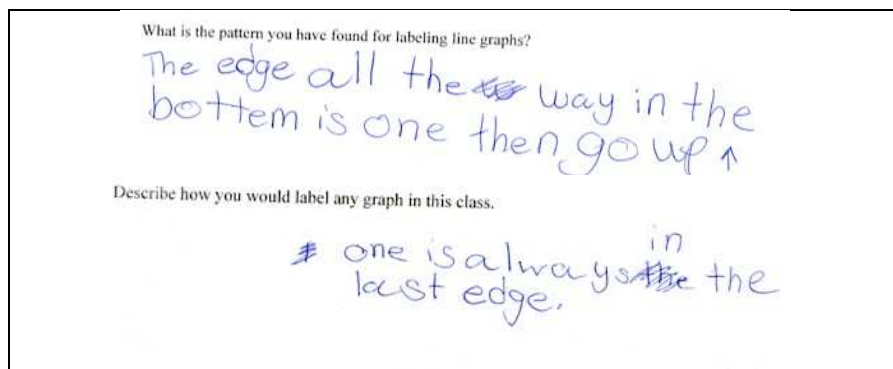 What is the pattern you have found for labeling line graphs?
The edge all the way in the
bottem is one then go up ↑
Describe how you would label any graph in this class.
one is always in the
last edge.